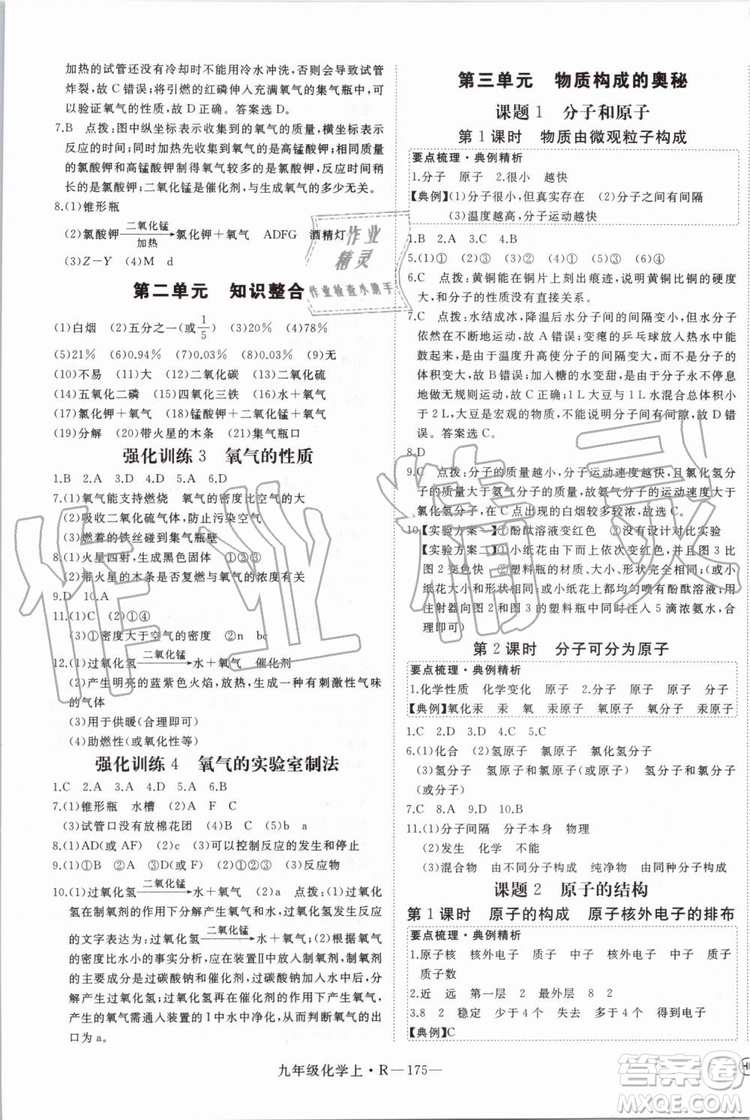 加热的试管还没有冷却时不能用冷水冲洗，否则会导致试管
炸裂，故C错误；将引燃的红磷伸入充满氧气的集气瓶中，可
以验证氧气的助燃性，故D错误。答案选A。
7.B　点拨：图中纵坐标表示收集到的氧气的质量，横坐标表示
反应的时间；同时加热等质量的氯酸钾和高锰酸钾，高锰酸钾
的氯酸钾和高锰酸钾
催化剂，反应前后质量不变，故C错误。
8.(1)锥形瓶
(2)氯酸钾 二氧化锰 加热 氯化钾＋氧气　ADFG　酒精灯
(3)Z－Y　(4)减小　大
第二单元　知识整合
(1)白烟　(2)五分之一(或1/5)　(3)20%　(4)78%
(5)21%　(6)0.94%　(7)0.03%　(8)0.03%　(9)无
(10)不易　(11)大　(12)二氧化碳　(13)二氧化硫
(14)五氧化二磷　(15)四氧化三铁　(16)水＋氧气
(17)氯化钾＋氧气　(18)锰酸钾＋二氧化锰＋氧气
(19)分解　(20)带火星的木条　(21)集气瓶口
强化训练3　氧气的性质
1.B　2.A　3.D　4.D　5.D　6.A
7.(1)氧气能支持燃烧　氧气的密度比空气的大
(2)吸收二氧化硫气体，防止污染空气
(3)燃着的铁丝碰到集气瓶壁
8.(1)火星四射，生成黑色固体　①②③
(2)带火星的木条是否复燃　④　①②③
9.D　10.A
11.(1)②③　(2)①④
(3)①密度大于空气的密度　②n　bc
12.(1)过氧化氢 二氧化锰 水＋氧气　催化剂
(2)产生明亮的蓝紫色火焰，放热，生成一种有刺激性气味
的气体
(3)用于供暖(或其他合理答案)
(4)助燃性(或氧化性)
强化训练4　氧气的实验室制法
1.C　2.A　3.D　4.A　5.A　6.B
7.(1)锥形瓶　水槽　(2)B　C　F
(3)试管口没有放棉花团　(4)b　(5)b　a
8.(1)AD　大　(2)c　(3)可以控制反应的发生和停止
9.(1)①②　(2)③④　(3)①②③④　(4)①
10.(1)过氧化氢 二氧化锰 水＋氧气　(2)a　点拨：过氧化氢
在制氧剂的作用下放出氧气，其中过碳酸钠与水反应产生
过氧化氢，过氧化氢在催化剂的作用下生成氧气，发生反应
的文字表达式为：过氧化氢 二氧化锰 水＋氧气；根据氧气
的密度比水小的事实分析，应在装置Ⅱ中先放制氧剂，制氧剂的主
要成分为过碳酸钠和催化剂，然后加水，过碳酸钠与水反应生成
过氧化氢，过氧化氢再在催化剂的作用下产生氧气，产生的
氧气需通入装有水的装置Ⅰ中进行湿润，所以氧气导管的出
口为a。
第三单元　物质构成的奥秘
课题1　分子和原子
第1课时　物质由微观粒子构成
要点梳理·典例精析
1.分子　原子　2.很小　越快
【典例】(1)分子很小，但真实存在　(2)分子之间有间隔
(3)温度越高，分子运动越快
1.B　2.A　3.C　4.D
5.(1)①　(2)③　(3)②　(4)④
6.C　点拨：黄铜能在铜片上刻出痕迹，说明黄铜比铜的硬度
大，故C错误。
7.C　点拨：水结成冰，降温后水分子的运动速率变慢，但水分子
依然在不断地运动，故A错误；变瘪的乒乓球放入热水中，
由于温度升高使分子的间隔变大而鼓起来，分子的大小不变，
故B错误；加入糖的水变甜，是由于糖分子不断地
使每一部分的水都含有糖分子，故C正确；1 L大豆与1 L水混合总体积小
于2 L，大豆是宏观的物质，不能说明分子间有间隔，故D
错误。答案选C。
8.D
9.C　点拨：分子的质量越小，分子运动速率越快，且氯化氢分
子的质量大于氨气分子的质量，所以氨分子运动速率快，
氯化氢分子运动的慢，产生的白烟较多较浓，故选C。
10.【实验方案一】①酚酞溶液变红色　②没有设计对比实验
【实验方案二】①小纸花由右向左依次变成红色　②图3比
图2变色更快　③塑料瓶的大小、形状完全相同；(或小
纸花大小形状都相同；或小纸花上都均匀喷有酚酞溶液；用
注射器向图2和图3的塑料瓶中各注入5滴浓氨水，合
理即可)
第2课时　分子可分为原子
要点梳理·典例精析
1.化学性质　化学变化　原子　2.分子　原子
【典例】氧化汞　汞　氧　氧原子　氧分子　汞原子
1.C　2.D　3.D　4.C　5.C
6.(1)化合　(2)氢原子　氯原子　氯化氢分子
(3)氢分子　氯分子　氯化氢分子　氢原子　氯原子
7.C　8.A　9.D　10.B
11.(1)分子间隔　分子本身　物理
(2)发生　化学　不能
(3)混合物　由不同分子构成　纯净物　由同种分子构成
课题2　原子的结构
第1课时　原子的构成　原子核外电子的排布
要点梳理·典例精析
1.原子核　核外电子　质子　中子　质子　核外电子
质子数
2.近　远　第一层　2　最外层　8　2
3.8　2　稳定　少于4　失去　多于4　得到　电子
【典例】C
九年级化学上·R—175—